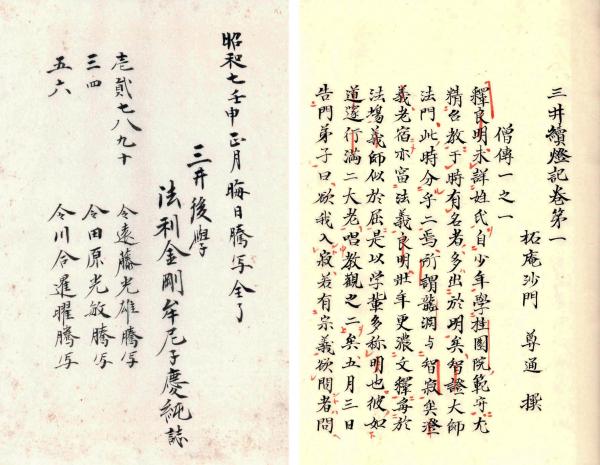 三井續燈記卷第一
柘庵沙門 尊通 撰
僧傳一之一
釋良明未詳姓氏自少年學桂園院範守尤
精台教于時有名者多出於明矣智證大師
法門此時分乎二焉所謂龍淵与智寂矣澄
義老宿亦富法義良明壯年更濃文釋每於
法場義師似於屈是以学輩多称明也彼如
道邃行滿二大老唱教觀之二矣五月三日
告門弟子曰欲我入寂若有宗義欲問者問
昭和七壬申正月晦日騰写全了
三井後學
法利金剛牟尼子慶純誌
壱貳七八九十 令遠藤光雄騰写
三四 令田原光敏騰写
五六 令川合暹曜騰写